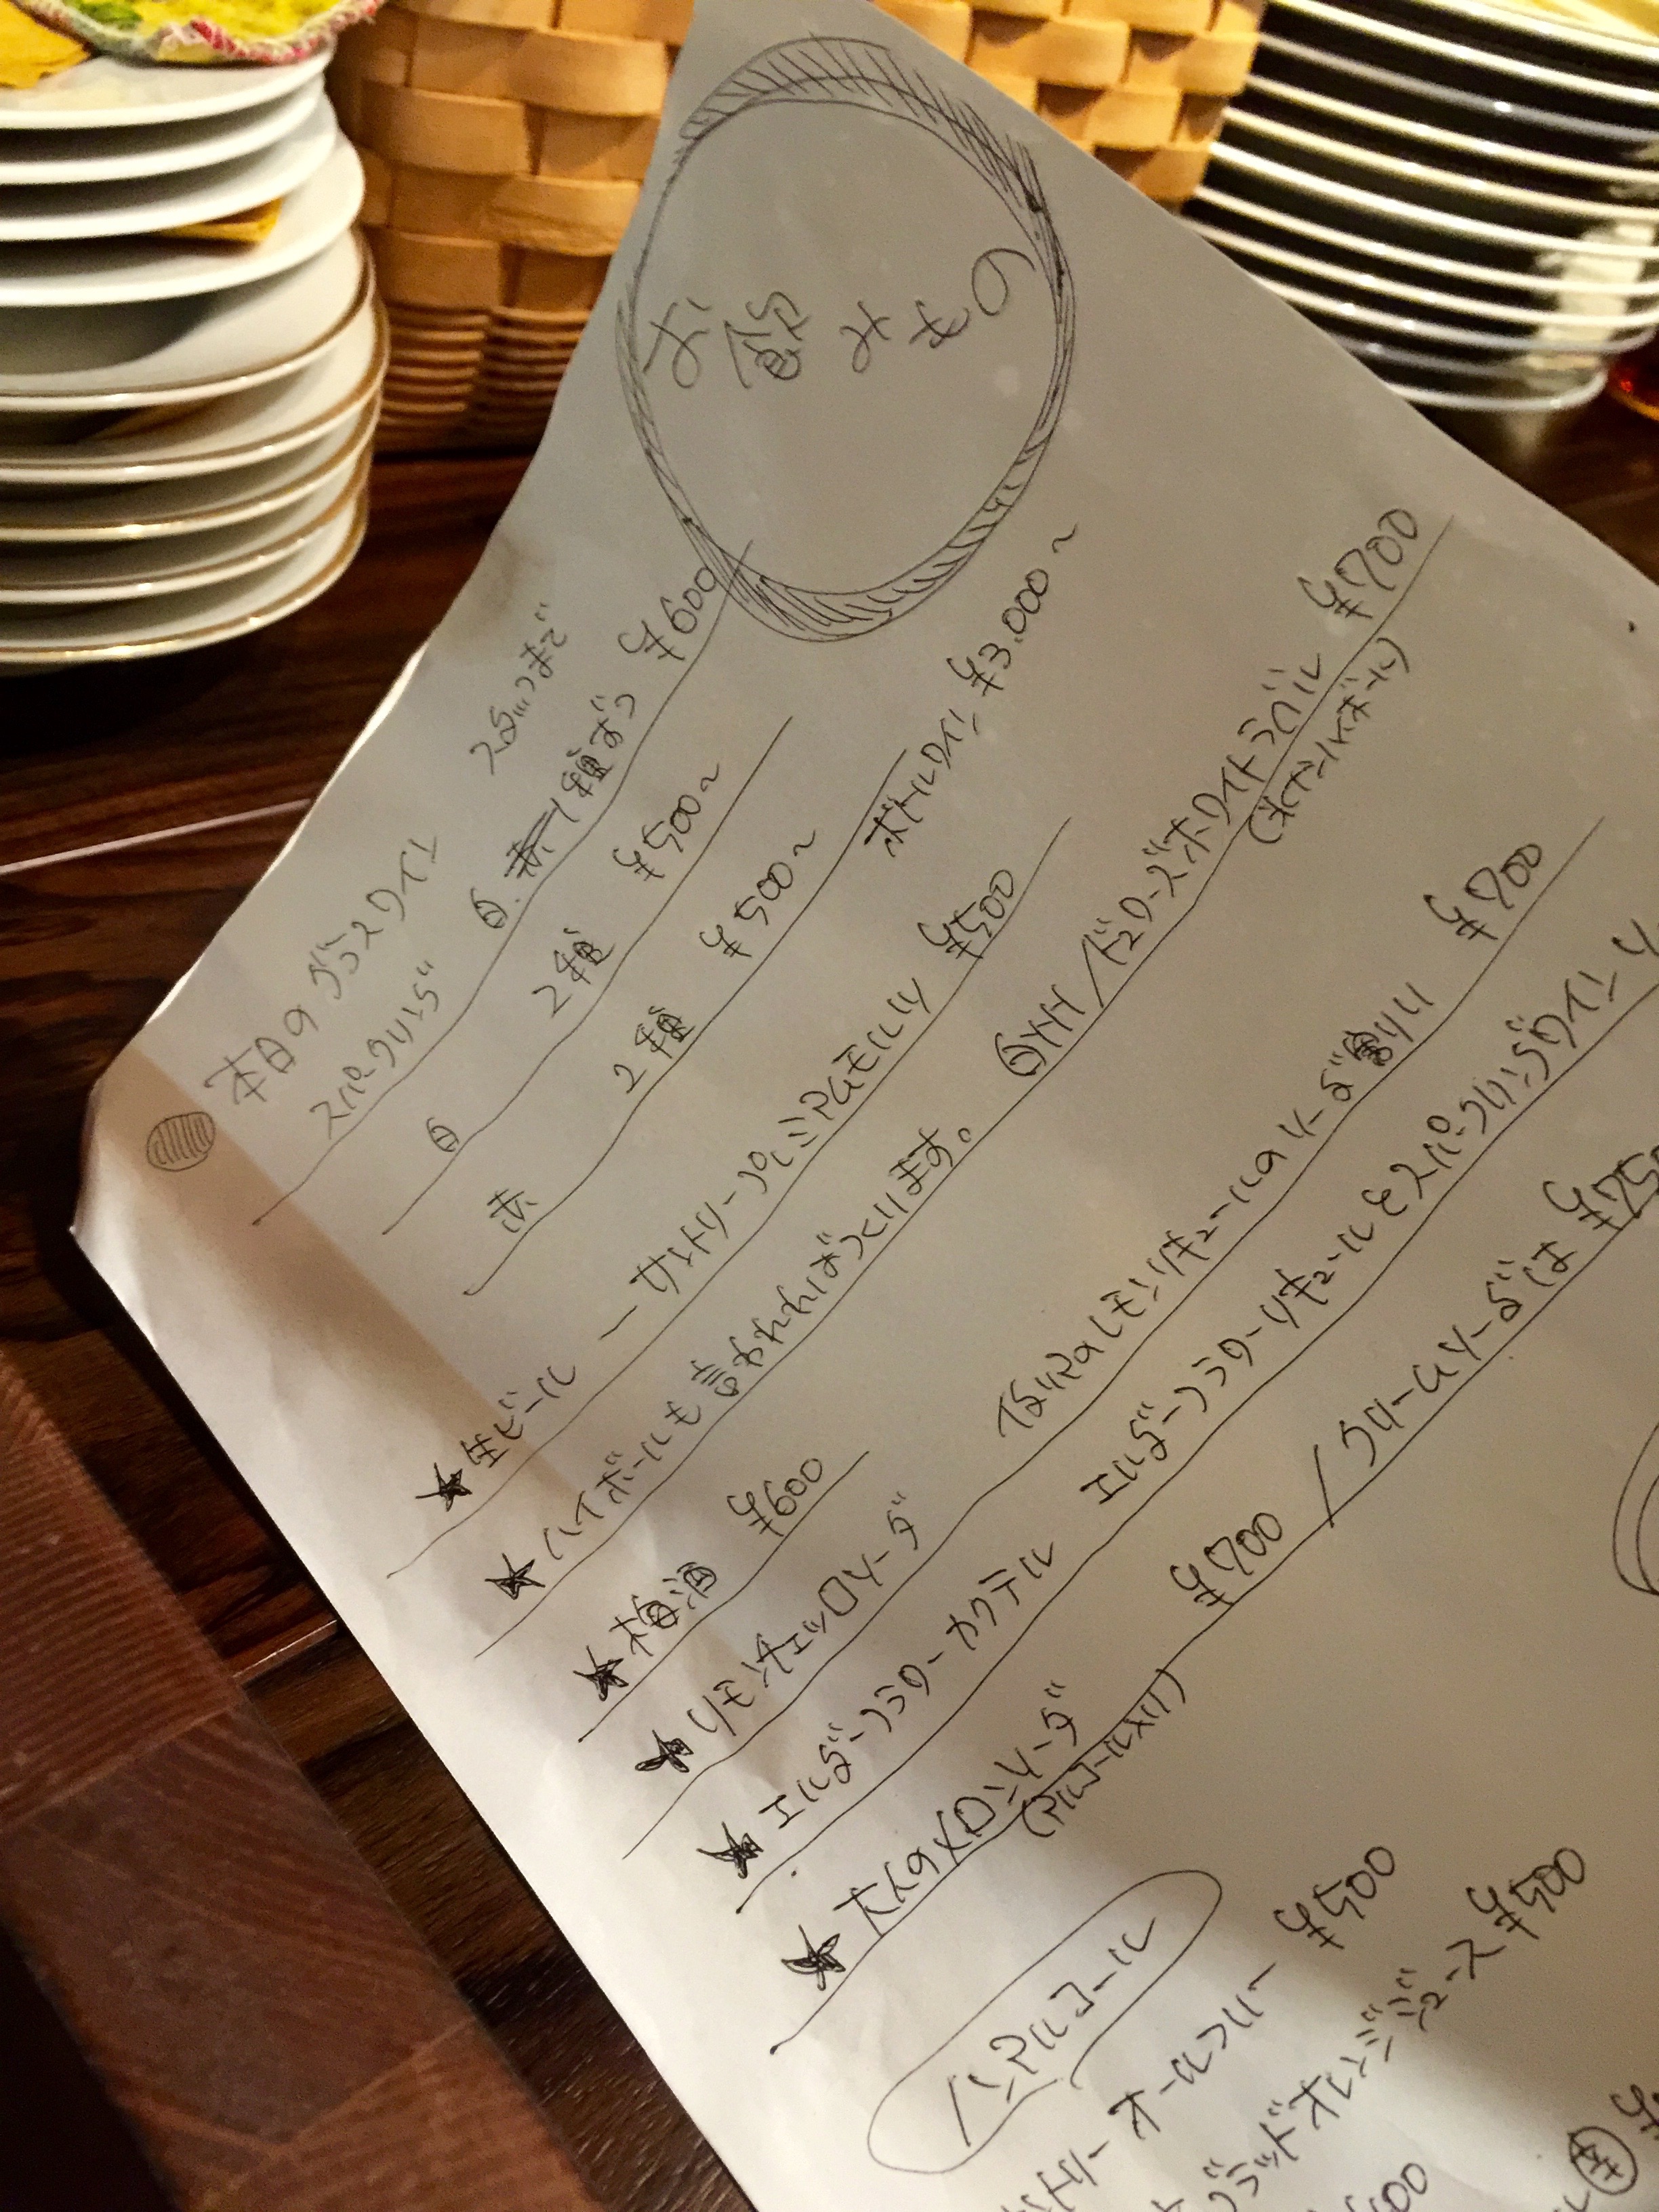 お飲みもの
本日のグラスワイン
スパークリング 白 1種ずつ ¥600
白 2種 ¥500〜
赤 2種 ¥500〜 ボトルワイン ¥3.000〜
★生ビール ーサントリープレミアムモルツ ¥500
★ハイボールも言われればつくります。 白州 / ドュワーズホワイトラベル ¥700
★梅酒 ¥600
★リモンチェッロソーダ イタリアのレモンリキュールのソーダ割り ¥700
★エルダーフラワーカクテル エルダーフラワーリキュールとスパークリングワイン
★大人のメロンソーダ ¥700 / クリームソーダは
(アルコール入り)
ノンアルコール
オールフリー ¥500
ブラッドオレンジジュース ¥500